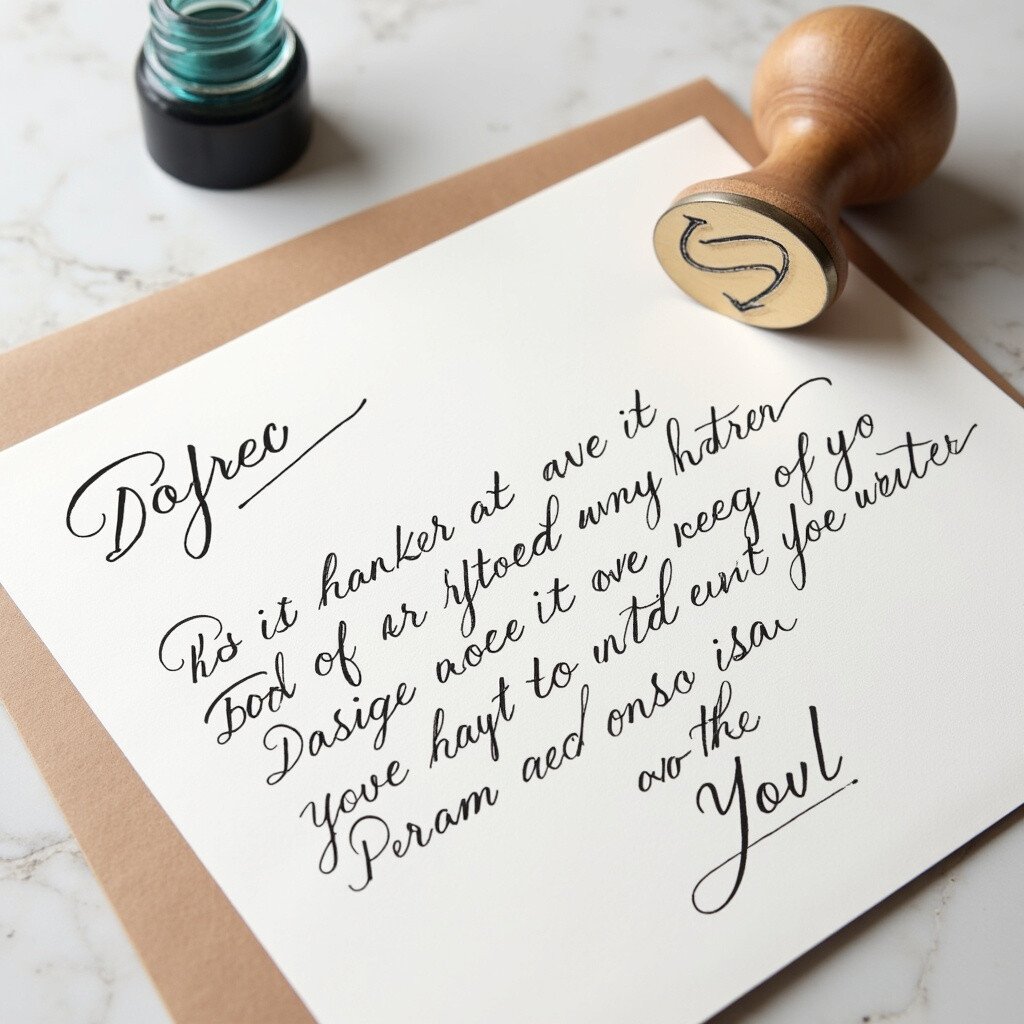 Dofrec
Ks it hanker at ave it
Bod of ar of wny
Dasige aoce it ove keeg of yo
yove hayt to untd eunt yoe weuter
Peram aed onso isau
avo the
Youl